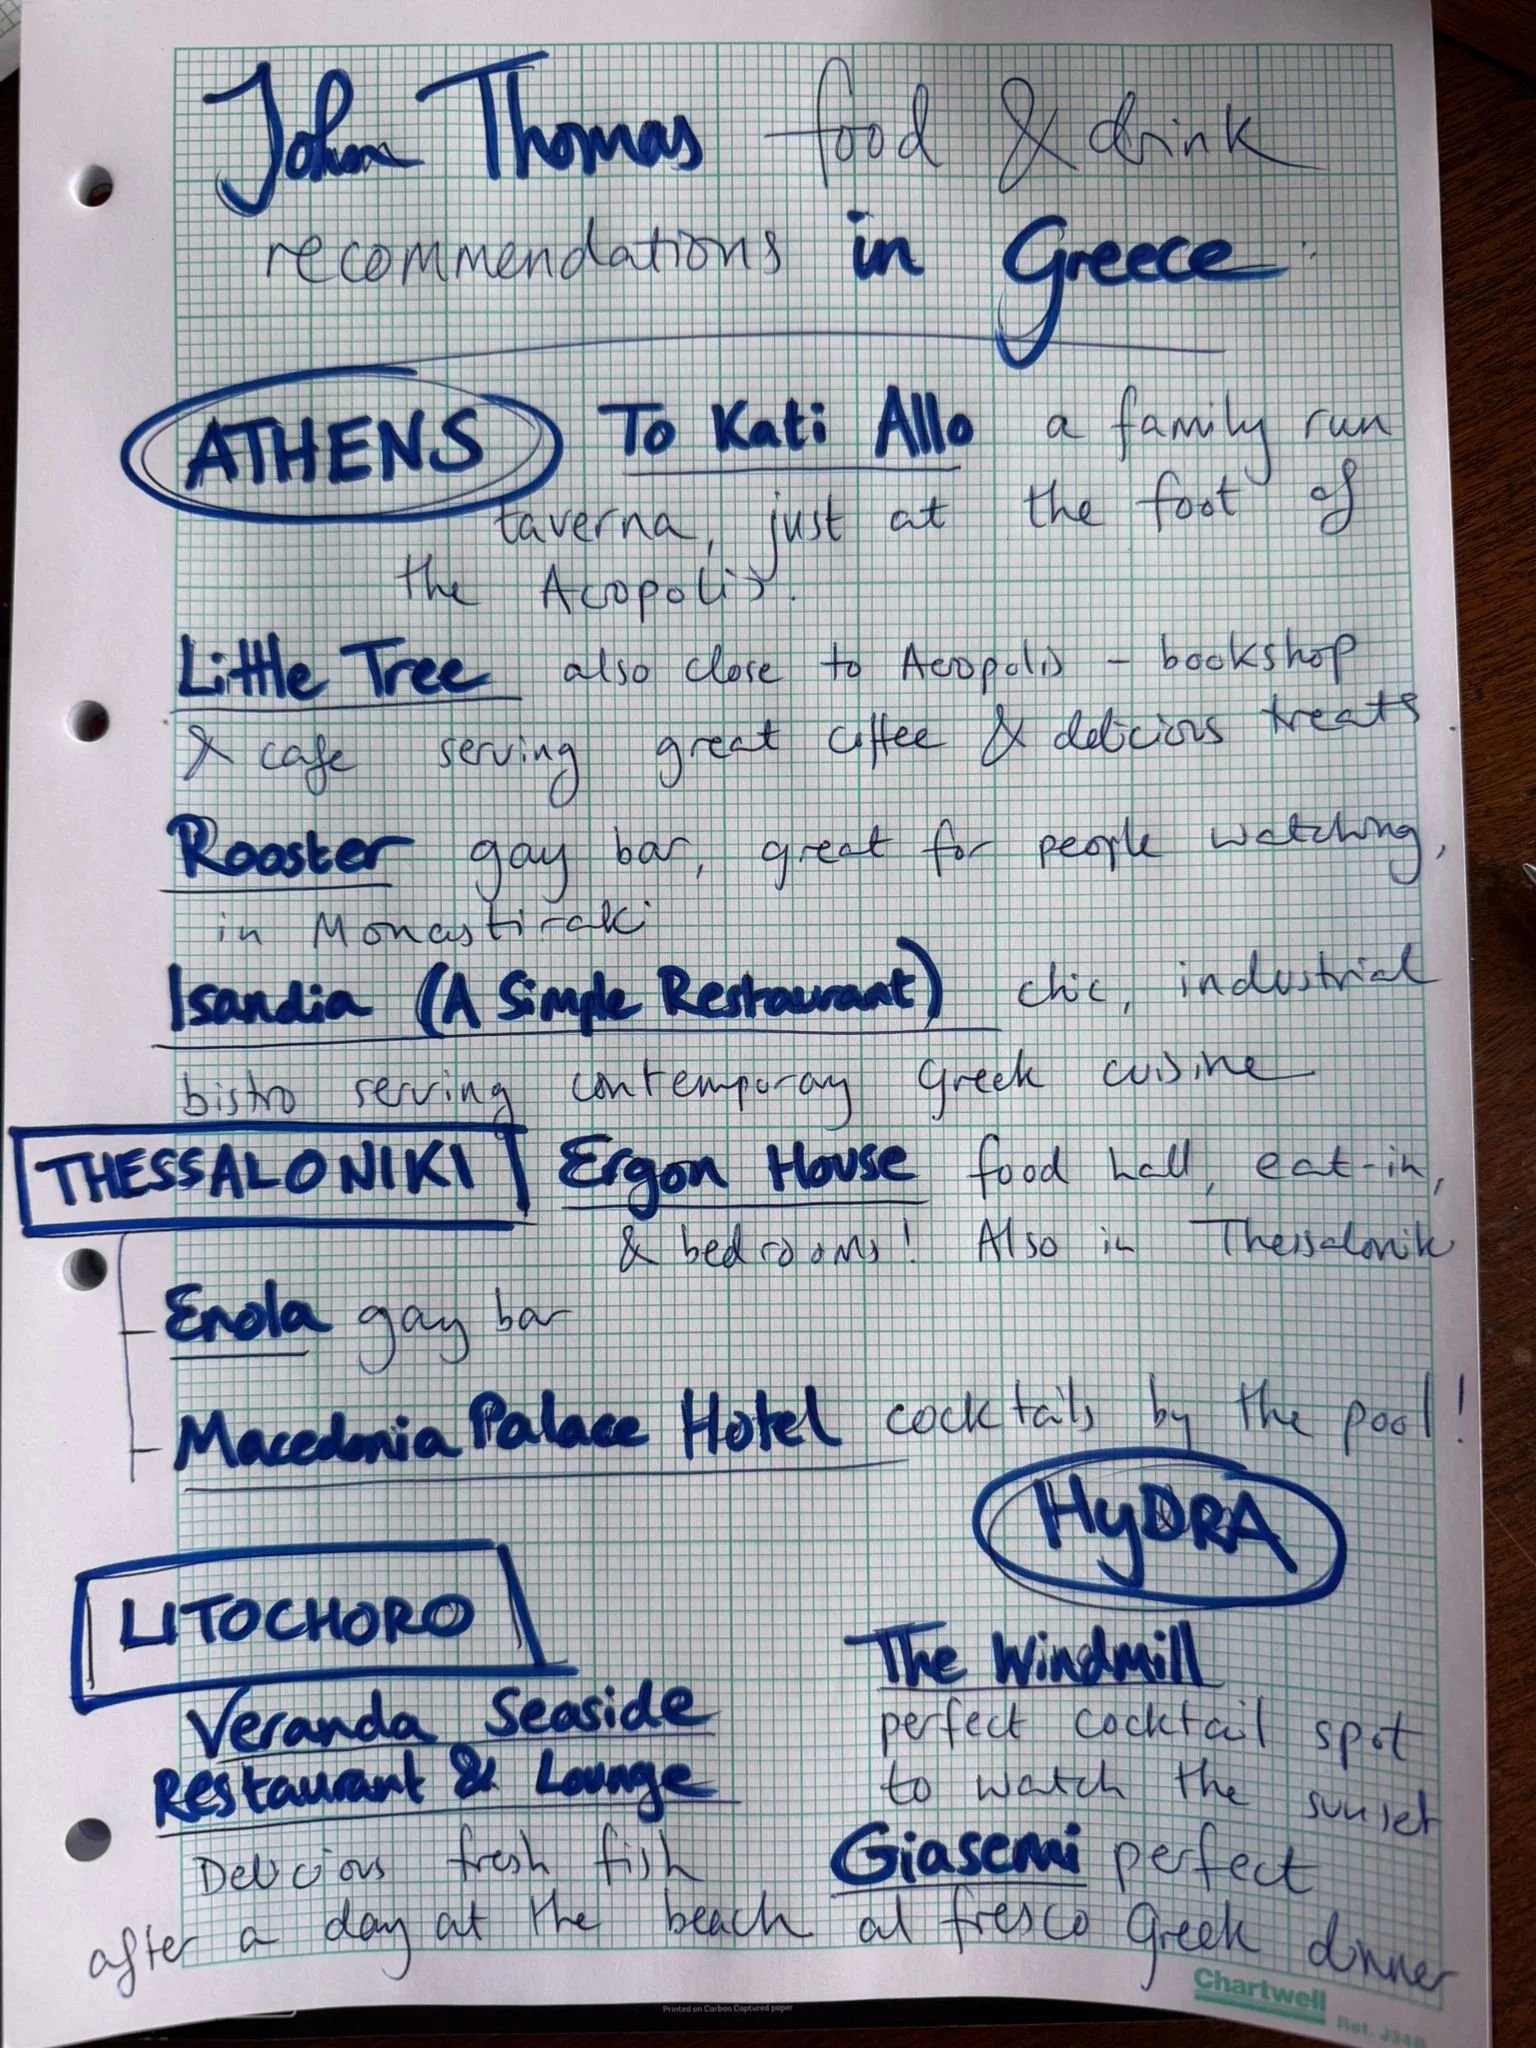 John Thomas food & drink
recommendations in Greece:
ATHENS To Kati Allo a family run
taverna, just at the foot of
the Acropolis.
Little Tree also close to Acropolis - bookshop
& cafe serving great coffee & delicious treats.
Rooster gay bar, great for people watching,
in Monastiraki
Isandia (A Simple Restaurant) chic, industrial
bistro serving contemporary Greek cuisine
THESSALONIKI Ergon House food hall, eat-in,
& bedrooms! Also in Thessaloniki
- Enola gay bar
- Macedonia Palace Hotel cocktails by the pool!
LITOCHORO
Veranda Seaside
Restaurant & Lounge
Delicious fresh fish
after a day at the beach
HYDRA
The Windmill
perfect cocktail spot
to watch the sunset
Giasemi perfect
al fresco Greek dinner
Chartwell
Ref. J34B
Printed on Carbon Captured paper